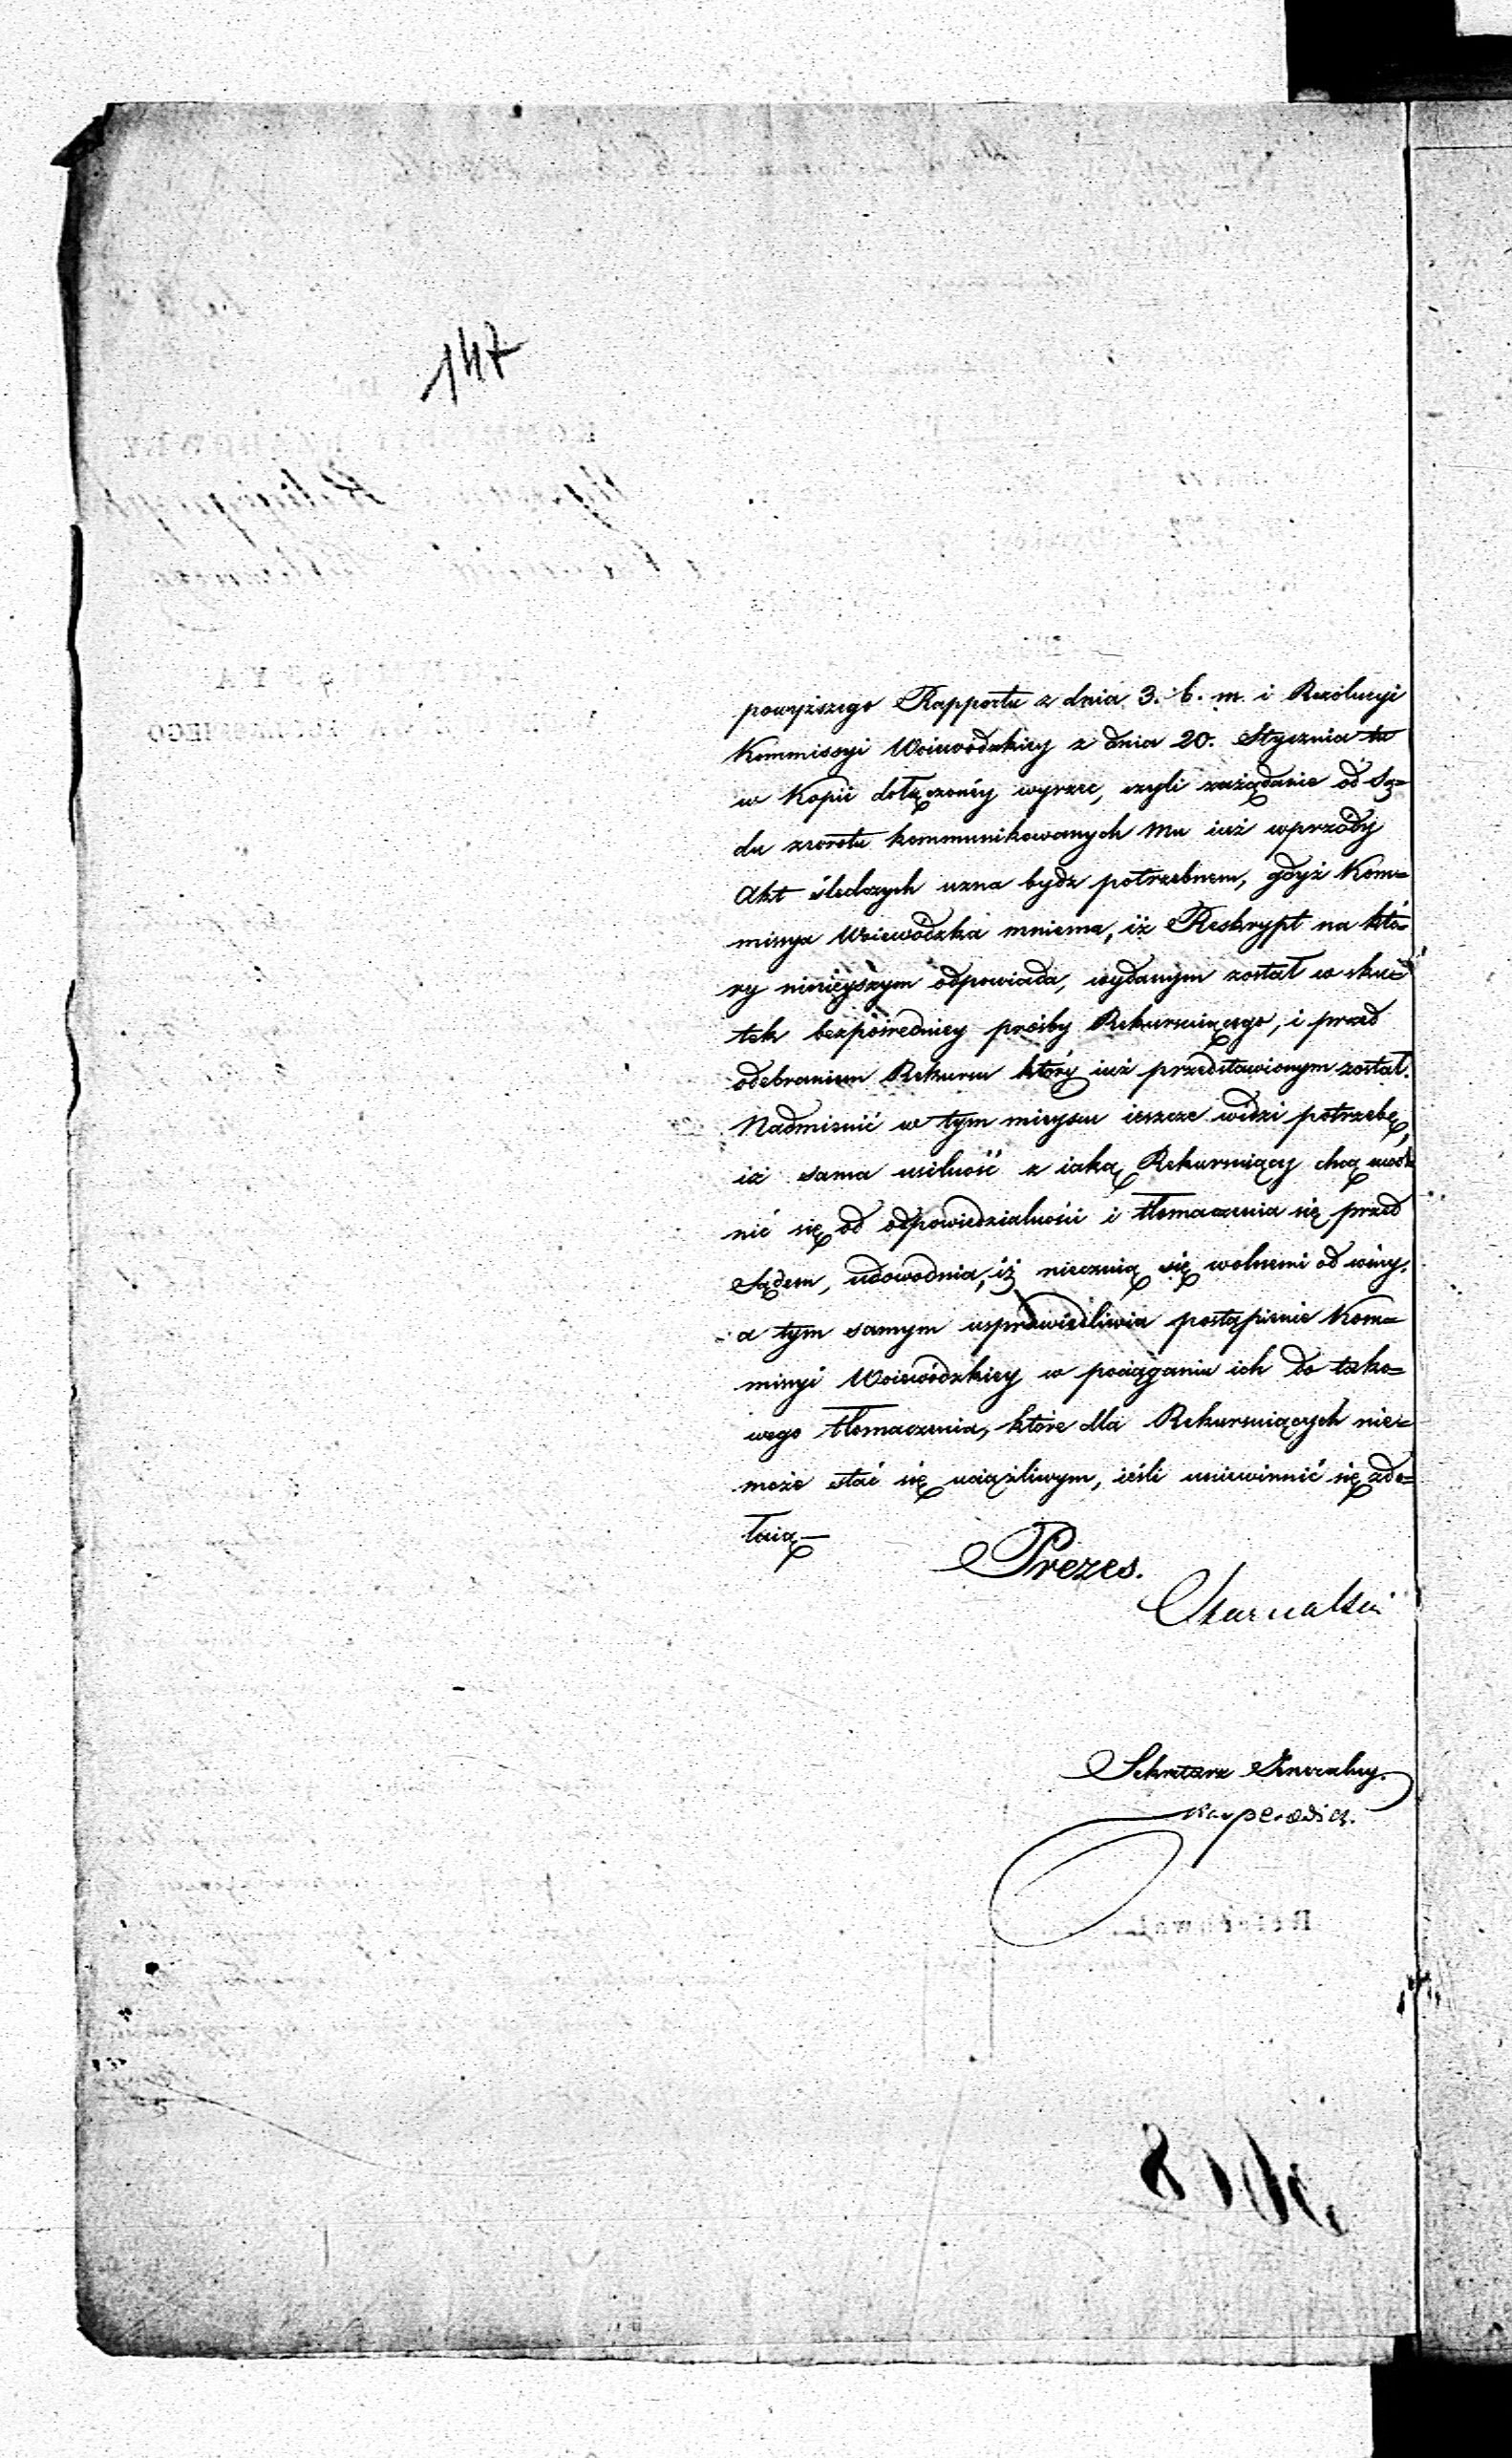 147
powyższego Rapportu z dnia 3. b. m. i Rezolucyi
Kommissyi Woiewódzkiey z dnia 20. Stycznia tu
w Kopii dołączoney wyrzec, czyli zażądanie od Są=
du zwrotu kommunikowanych mu iuż wprzódy
Akt śledczych uzna bydz potrzebnem, gdyż Kom=
missya Woiewódzka mniema, iż Reskrypt na któ=
ry ninieyszym odpowiada, wydanym został w sku=
tek bezpośredniey prośby Rekursuiącego, i przed
odebraniem Rekursu który iuż przedstawionym został.
Nadmienić w tym mieyscu ieszcze widzi potrzebę,
iż sama usilność z iaką Rekursuiący chcą uwol
nić się od odpowiedzialności i tłomaczenia się przed
Sądem, udowodnia, iż nieczuią się wolnemi od winy,
a tym samym usprawiedliwia postąpienie Kom=
missyi Woiewódzkiey w pociąganiu ich do tako=
wego tłomaczenia, które dla Rekursuiących nie=
może stać się uciążliwym, ieśli uniewinnić się zdo=
łaią—
Prezes.
Sekretarz Jeneralny.